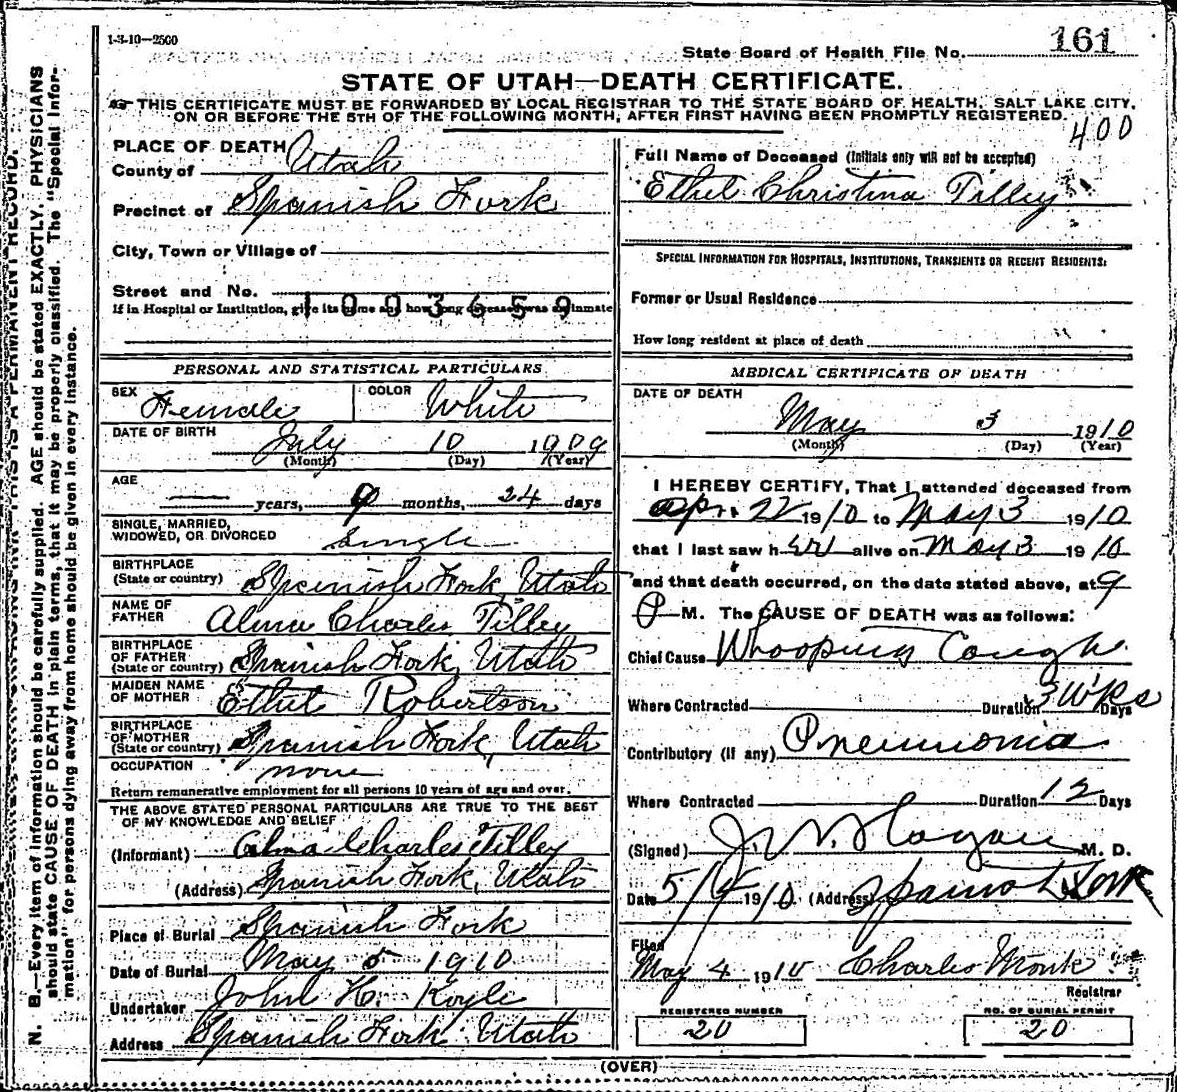 1-3-10—2500
State Board of Health File No. 161
STATE OF UTAH—DEATH CERTIFICATE.
THIS CERTIFICATE MUST BE FORWARDED BY LOCAL REGISTRAR TO THE STATE BOARD OF HEALTH, SALT LAKE CITY,
ON OR BEFORE THE 5TH OF THE FOLLOWING MONTH, AFTER FIRST HAVING BEEN PROMPTLY REGISTERED.
400
PLACE OF DEATH
County of Utah
Precinct of Spanish Fork
City, Town or Village of
Street and No.
If in Hospital or Institution, give its name and how long deceased was an inmate
1003659
PERSONAL AND STATISTICAL PARTICULARS
SEX Female COLOR White
DATE OF BIRTH July 10 1909
(Month) (Day) (Year)
AGE
years, 9 months, 24 days
SINGLE, MARRIED,
WIDOWED, OR DIVORCED Single
BIRTHPLACE
(State or country) Spanish Fork, Utah
NAME OF
FATHER Alma Charles Tilley
BIRTHPLACE
OF FATHER
(State or country) Spanish Fork, Utah
MAIDEN NAME
OF MOTHER Ethel Robertson
BIRTHPLACE
OF MOTHER
(State or country) Spanish Fork, Utah
OCCUPATION none
Return remunerative employment for all persons 10 years of age and over.
THE ABOVE STATED PERSONAL PARTICULARS ARE TRUE TO THE BEST
OF MY KNOWLEDGE AND BELIEF
(Informant) Alma Charles Tilley
(Address) Spanish Fork, Utah
Place of Burial Spanish Fork
Date of Burial May 5 1910
Undertaker John H. Koyle
Address Spanish Fork Utah
Full Name of Deceased (Initials only will not be accepted)
Ethel Christina Tilley
SPECIAL INFORMATION FOR HOSPITALS, INSTITUTIONS, TRANSIENTS OR RECENT RESIDENTS:
Former or Usual Residence
How long resident at place of death
MEDICAL CERTIFICATE OF DEATH
DATE OF DEATH
May 3 1910
(Month) (Day) (Year)
I HEREBY CERTIFY, That I attended deceased from
Apr. 22 1910 to May 3 1910
that I last saw her alive on May 3 1910
and that death occurred, on the date stated above, at 9
P M. The CAUSE OF DEATH was as follows:
Chief Cause Whooping Cough
Where Contracted Duration 3 Wks Days
Contributory (if any) Pneumonia
Where Contracted Duration 12 Days
(Signed) M. D.
Date 5/4 1910 (Address) Spanish Fork
Filed
May 4 1910 Charles Monk
Registrar
REGISTERED NUMBER
20
NO. OF BURIAL PERMIT
20
(OVER)
THIS IS A PERMANENT RECORD.
N. B.—Every item of information should be carefully supplied. AGE should be stated EXACTLY. PHYSICIANS
should state CAUSE OF DEATH in plain terms, that it may be properly classified. The "Special Infor-
mation" for persons dying away from home should be given in every instance.